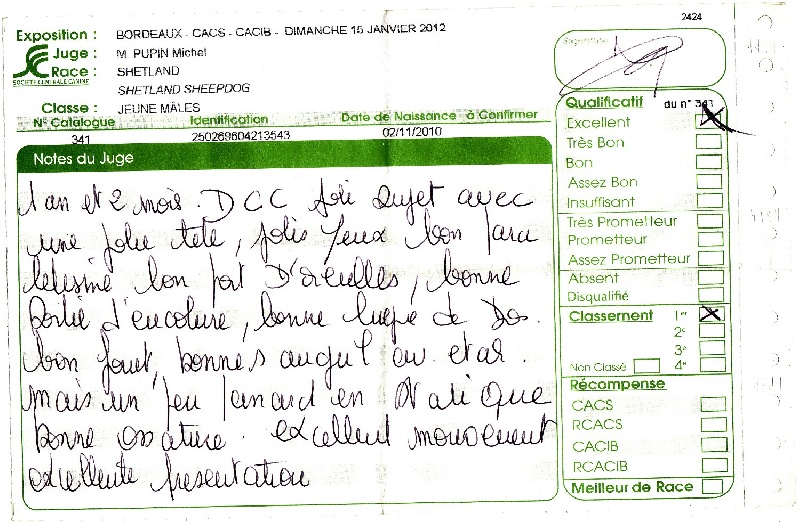 2424
Exposition : BORDEAUX - CACS - CACIB - DIMANCHE 15 JANVIER 2012
Juge : M. PUPIN Michel
Race : SHETLAND
SOCIÉTÉ CENTRALE CANINE
SHETLAND SHEEPDOG
Classe : JEUNE MÂLES
N° Catalogue Identification Date de Naissance à Confirmer
341 250269604213543 02/11/2010
Notes du Juge
1 an et 2 mois. DCC joli sujet avec
une jolie tete, jolis yeux bon para
lelisme bon port D'oreilles, bonne
sortie d'encolure, bonne ligne de Dos.
bon fouet, bonnes angul av. et ar.
mais un peu panard en statique
bonne ossature. excellent mouvement
excellente presentation
Signature
Qualificatif du n° 341
Excellent
Très Bon
Bon
Assez Bon
Insuffisant
Très Prometteur
Prometteur
Assez Prometteur
Absent
Disqualifié
Classement 1er
2e
3e
Non Classé 4e
Récompense
CACS
RCACS
CACIB
RCACIB
Meilleur de Race